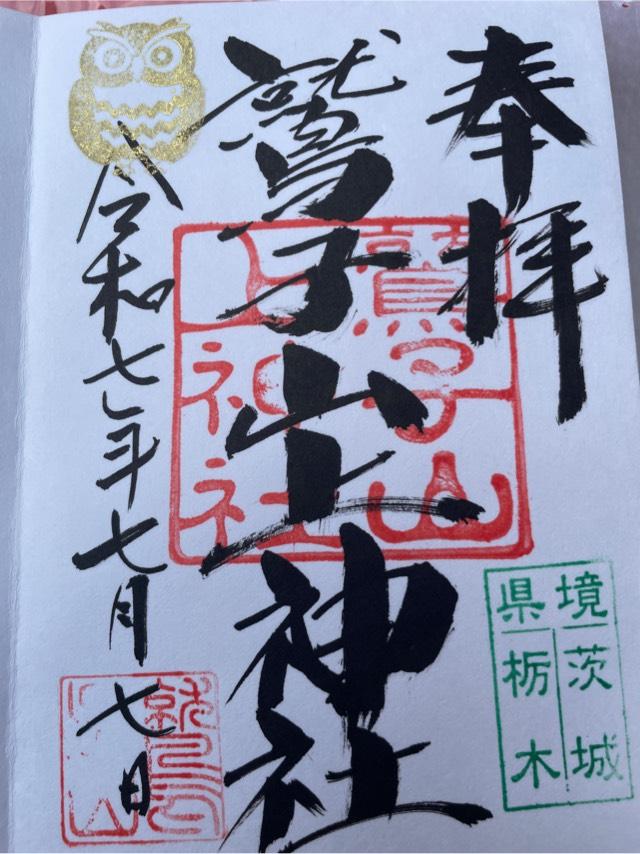 奉拝
鷲子山上神社
令和七年七月七日
鷲子山
上神社
県境
茨城
栃木